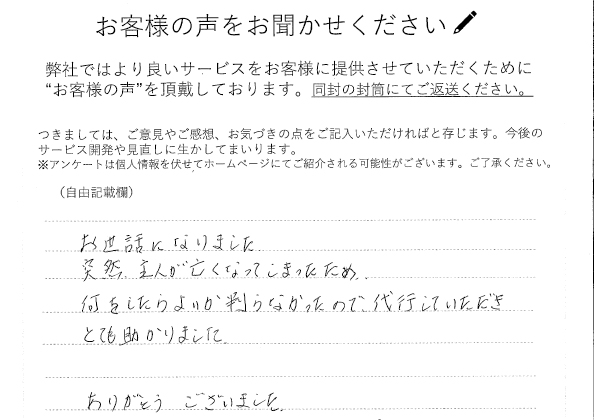 お客様の声をお聞かせください
弊社ではより良いサービスをお客様に提供させていただくために
“お客様の声”を頂戴しております。同封の封筒にてご返送ください。
つきましては、ご意見やご感想、お気づきの点をご記入いただければと存じます。今後の
サービス開発や見直しに生かしてまいります。
※アンケートは個人情報を伏せてホームページにてご紹介される可能性がございます。ご了承ください。
（自由記載欄）
お世話になりました
突然 主人が亡くなってしまったため、
何をしたらよいか判らなかったので代行していただき
とても助かりました。
ありがとう ございました。